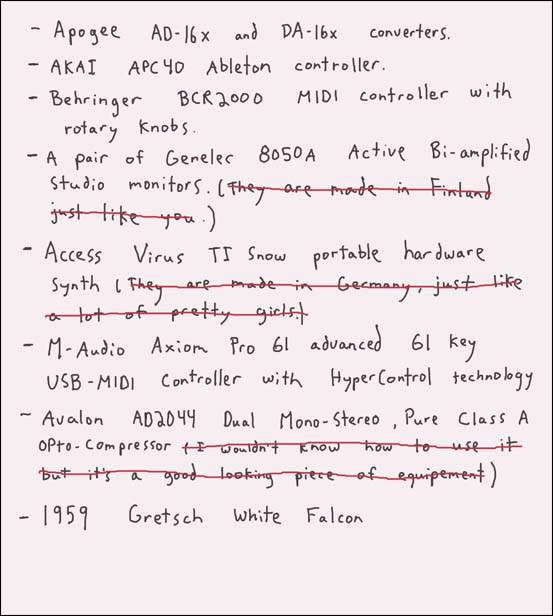 - Apogee AD-16x and DA-16x converters.
- AKAI APC40 Ableton controller.
- Behringer BCR2000 MIDI controller with
rotary knobs.
- A pair of Genelec 8050A Active Bi-amplified
Studio monitors. (They are made in Finland
just like you.)
- Access Virus TI Snow portable hardware
synth (They are made in Germany, just like
a lot of pretty girls.)
- M-Audio Axiom Pro 61 advanced 61 key
USB-MIDI Controller with HyperControl technology
- Avalon AD2044 Dual Mono-Stereo, Pure Class A
Opto-Compressor (I wouldn't know how to use it
but it's a good looking piece of equipement)
- 1959 Gretsch White Falcon